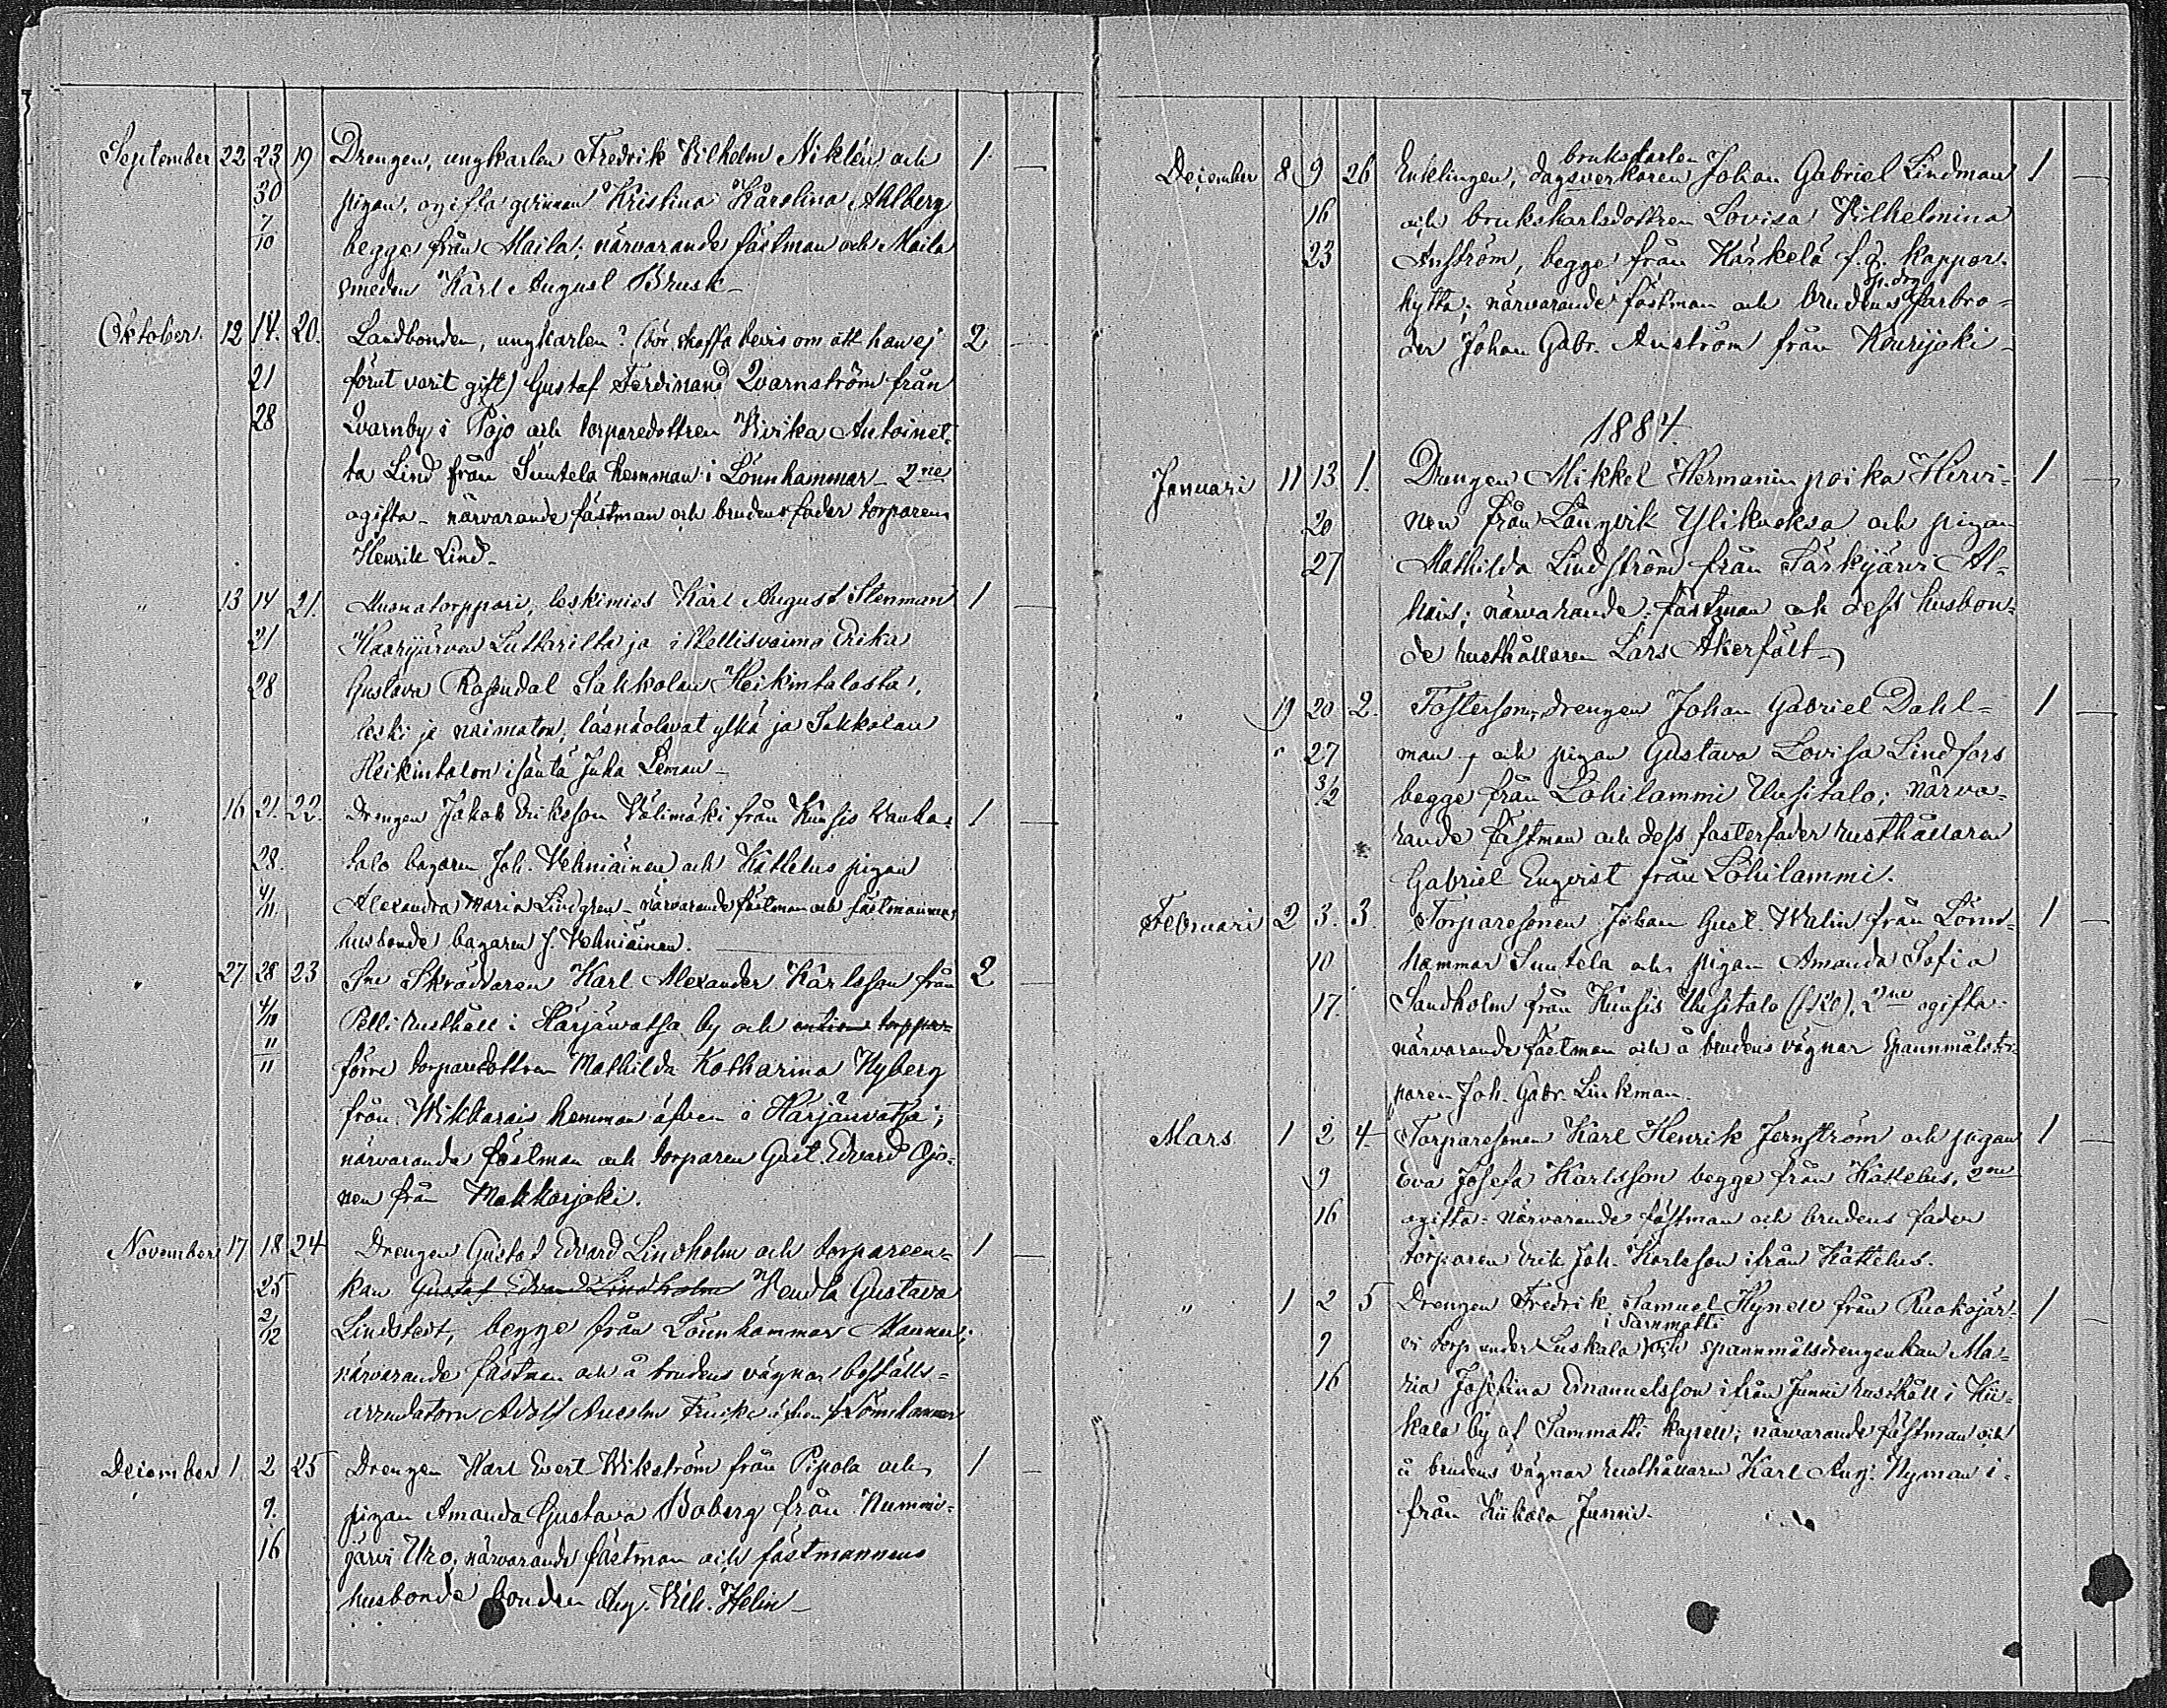 September 22 23 19 Drengen, ungkarlen Fredrik Vilhelm Niklén och 1 —
30 pigan, ogifta qvinnan Kristina Karolina Ahlberg
7/10 begge från Maila; närvarande fästman och Maila
smeden Karl August Brusk —
Oktober. 12 14. 20. Landbonden, ungkarlen? (bör skaffa bevis om att han ej 2
21 förut varit gift) Gustaf Ferdinand Qvarnström från
28 Qvarnby i Pojo och torparedottren Vivika Antoinet-
ta Lind från Suutela hemman i Lönnhammar — 2ne
ogifta — närvarande fästman och brudens fader torparen
Henrik Lind —
" 13 14 21. Muonatorppari, leskimies Karl August Stenman 1 —
21 Haarijärven Luttarilta ja itsellisvaimo Erika
28 Gustava Rosendal Sakkolan Heikintalosta,
leski ja naimaton, läsnäolevat ylkä ja Sakkolan
Heikintalon isäntä Juha Leman —
" 16 21. 22. Drengen Jakob Eriksson Välimäki från Kunsjo 1 —
28. talo bagaren Joh. Vehniäinen och Kattelus pigan
4/11. Alexandra Maria Lindgren — närvarande fästman och fästmannens
husbonde bagaren J. Vehniäinen.
" 27 28 23 Sne Skräddaren Karl Alexander Karlsson från 2
4/10 Pelli rusthåll i Härjänvatsa by och
11/11 förre torparedottren Mathilda Katharina Nyberg
från Wikkarais hemman äfven i Härjänvatsa;
närvarande fästman och torparen Gust. Edvard Ojo-
nen från Makkarjoki.
November 17 18 24 Drengen Gustaf Edvard Lindholm och torpareen- 1 —
25 kan Gustaf Edvard Lindholm Vendla Gustava
2/12 Lindstedt, begge från Lönnhammar Mannu;
närvarande fästman och å brudens vägnar boställs-
arrendatorn Adolf Anselm Lönnhammar
December 1 2 25 Drengen Karl Evert Wikström från Pipola och 1 —
9. pigan Amanda Gustava Boberg från Nummi-
16 järvi Uro; närvarande fästman och fästmannens
husbonde bonden Aug. Vilh. Helin —
brukskarlen
December 8 9 26 Enklingen, dagsverkaren Johan Gabriel Lindman 1 —
16 och brukskarlsdottren Lovisa Vilhelmina
23 Anström, begge från Kärkelä f. d. koppar-
hytta; närvarande fästman och brudens farbro-
der Johan Gabr. Anström från Kourijoki —
1884.
Januari 11 13 1. Drengen Mikkel Hermanin poika Hirvi- 1 —
20 nen från Långvik Ylikuoksa och pigan
27 Mathilda Lindström från Särkjärvi Al-
hais; närvarande: fästman och dess husbon-
de rusthållaren Lars Åkerfält —
" 19 20 2. Fosterson, drengen Johan Gabriel Dahl- 1 —
27 man och pigan Gustava Lovisa Lindfors
3/2 begge från Lohilammi Uusitalo; närva-
rande fästman och dess fosterfader rusthållaren
Gabriel Enqvist från Lohilammi.
Februari 2 3. 3. Torparesonen Johan Gust. Walin från Lönn- 1 —
10 hammar Suutela och pigan Amanda Sofia
17. Sandholm från Kunsjo Uusitalo 2ne ogifta
närvarande fästman och å brudens vägnar Spannmålstor-
paren Joh. Gabr. Linkman.
Mars 1 2 4 Torparesonen Karl Henrik Jernström och pigan 1 —
9 Eva Josefa Karlsson begge från Kattelus, 2ne
16 ogifta: närvarande fästman och brudens fader
torparen Erik Joh. Karlsson ifrån Kattelus.
" 1 2 5 Drengen Fredrik Samuel Hynell från Ruokojär- 1 —
i Sammatti
9 vi torp under Luskala och spannmålsdrengenkan Ma-
16 ria Josefina Emanuelsson ifrån Junni rusthåll i Kii-
kala by af Sammatti kapell; närvarande fästman och
å brudens vägnar rusthållaren Karl Aug. Nyman i-
från Kiikala Junni.